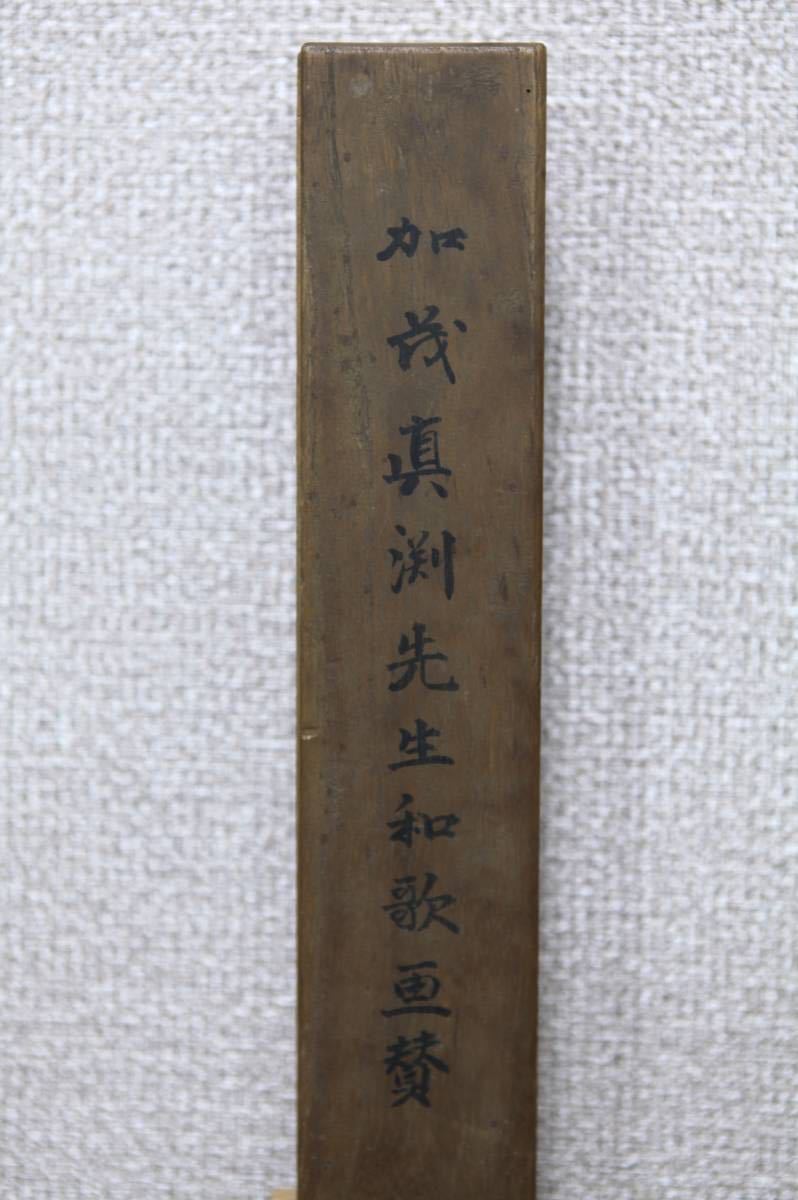 加茂眞渕先生和歌画賛